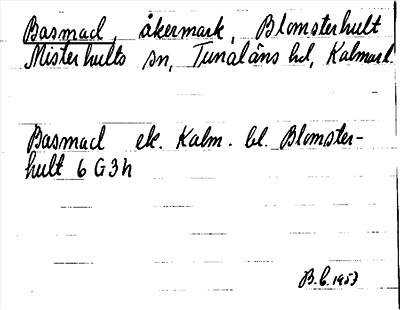 Basmad, åkermark, Blomsterhult
Misterhults sn, Tunaläns hd, Kalmar l.
Basmad ek. Kalm. bl. Blomster-
hult 6 G 3 h
B.C. 1953